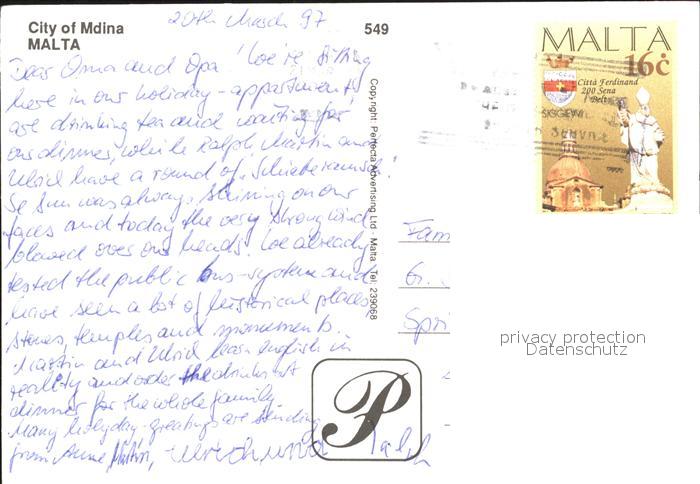 City of Mdina
MALTA
20th March 97
549
Dear Oma and Opa! We're sitting
here in our holiday-appartement,
are drinking tea and waiting for
our dinner, while Ralph, Martin and
Ulrich have a round of
Se sun was always shining on our
faces and today the very strong wind
blowed over our heads. We already
tested the public bus-system and
have seen a lot of historical places,
stones, temples and monuments.
Martin and Ulrich learn english in
reality and order the drinks at
dinner for the whole family.
Many holyday-greetings are sending
from Anne Martin, Ulrich und Ralph
Copyright Perfecta Advertising Ltd - Malta Tel: 239068
MALTA
16c
Città Ferdinand
200 Sena
SIĠĠIEWI
Fam
G.
Spri
P
privacy protection
Datenschutz